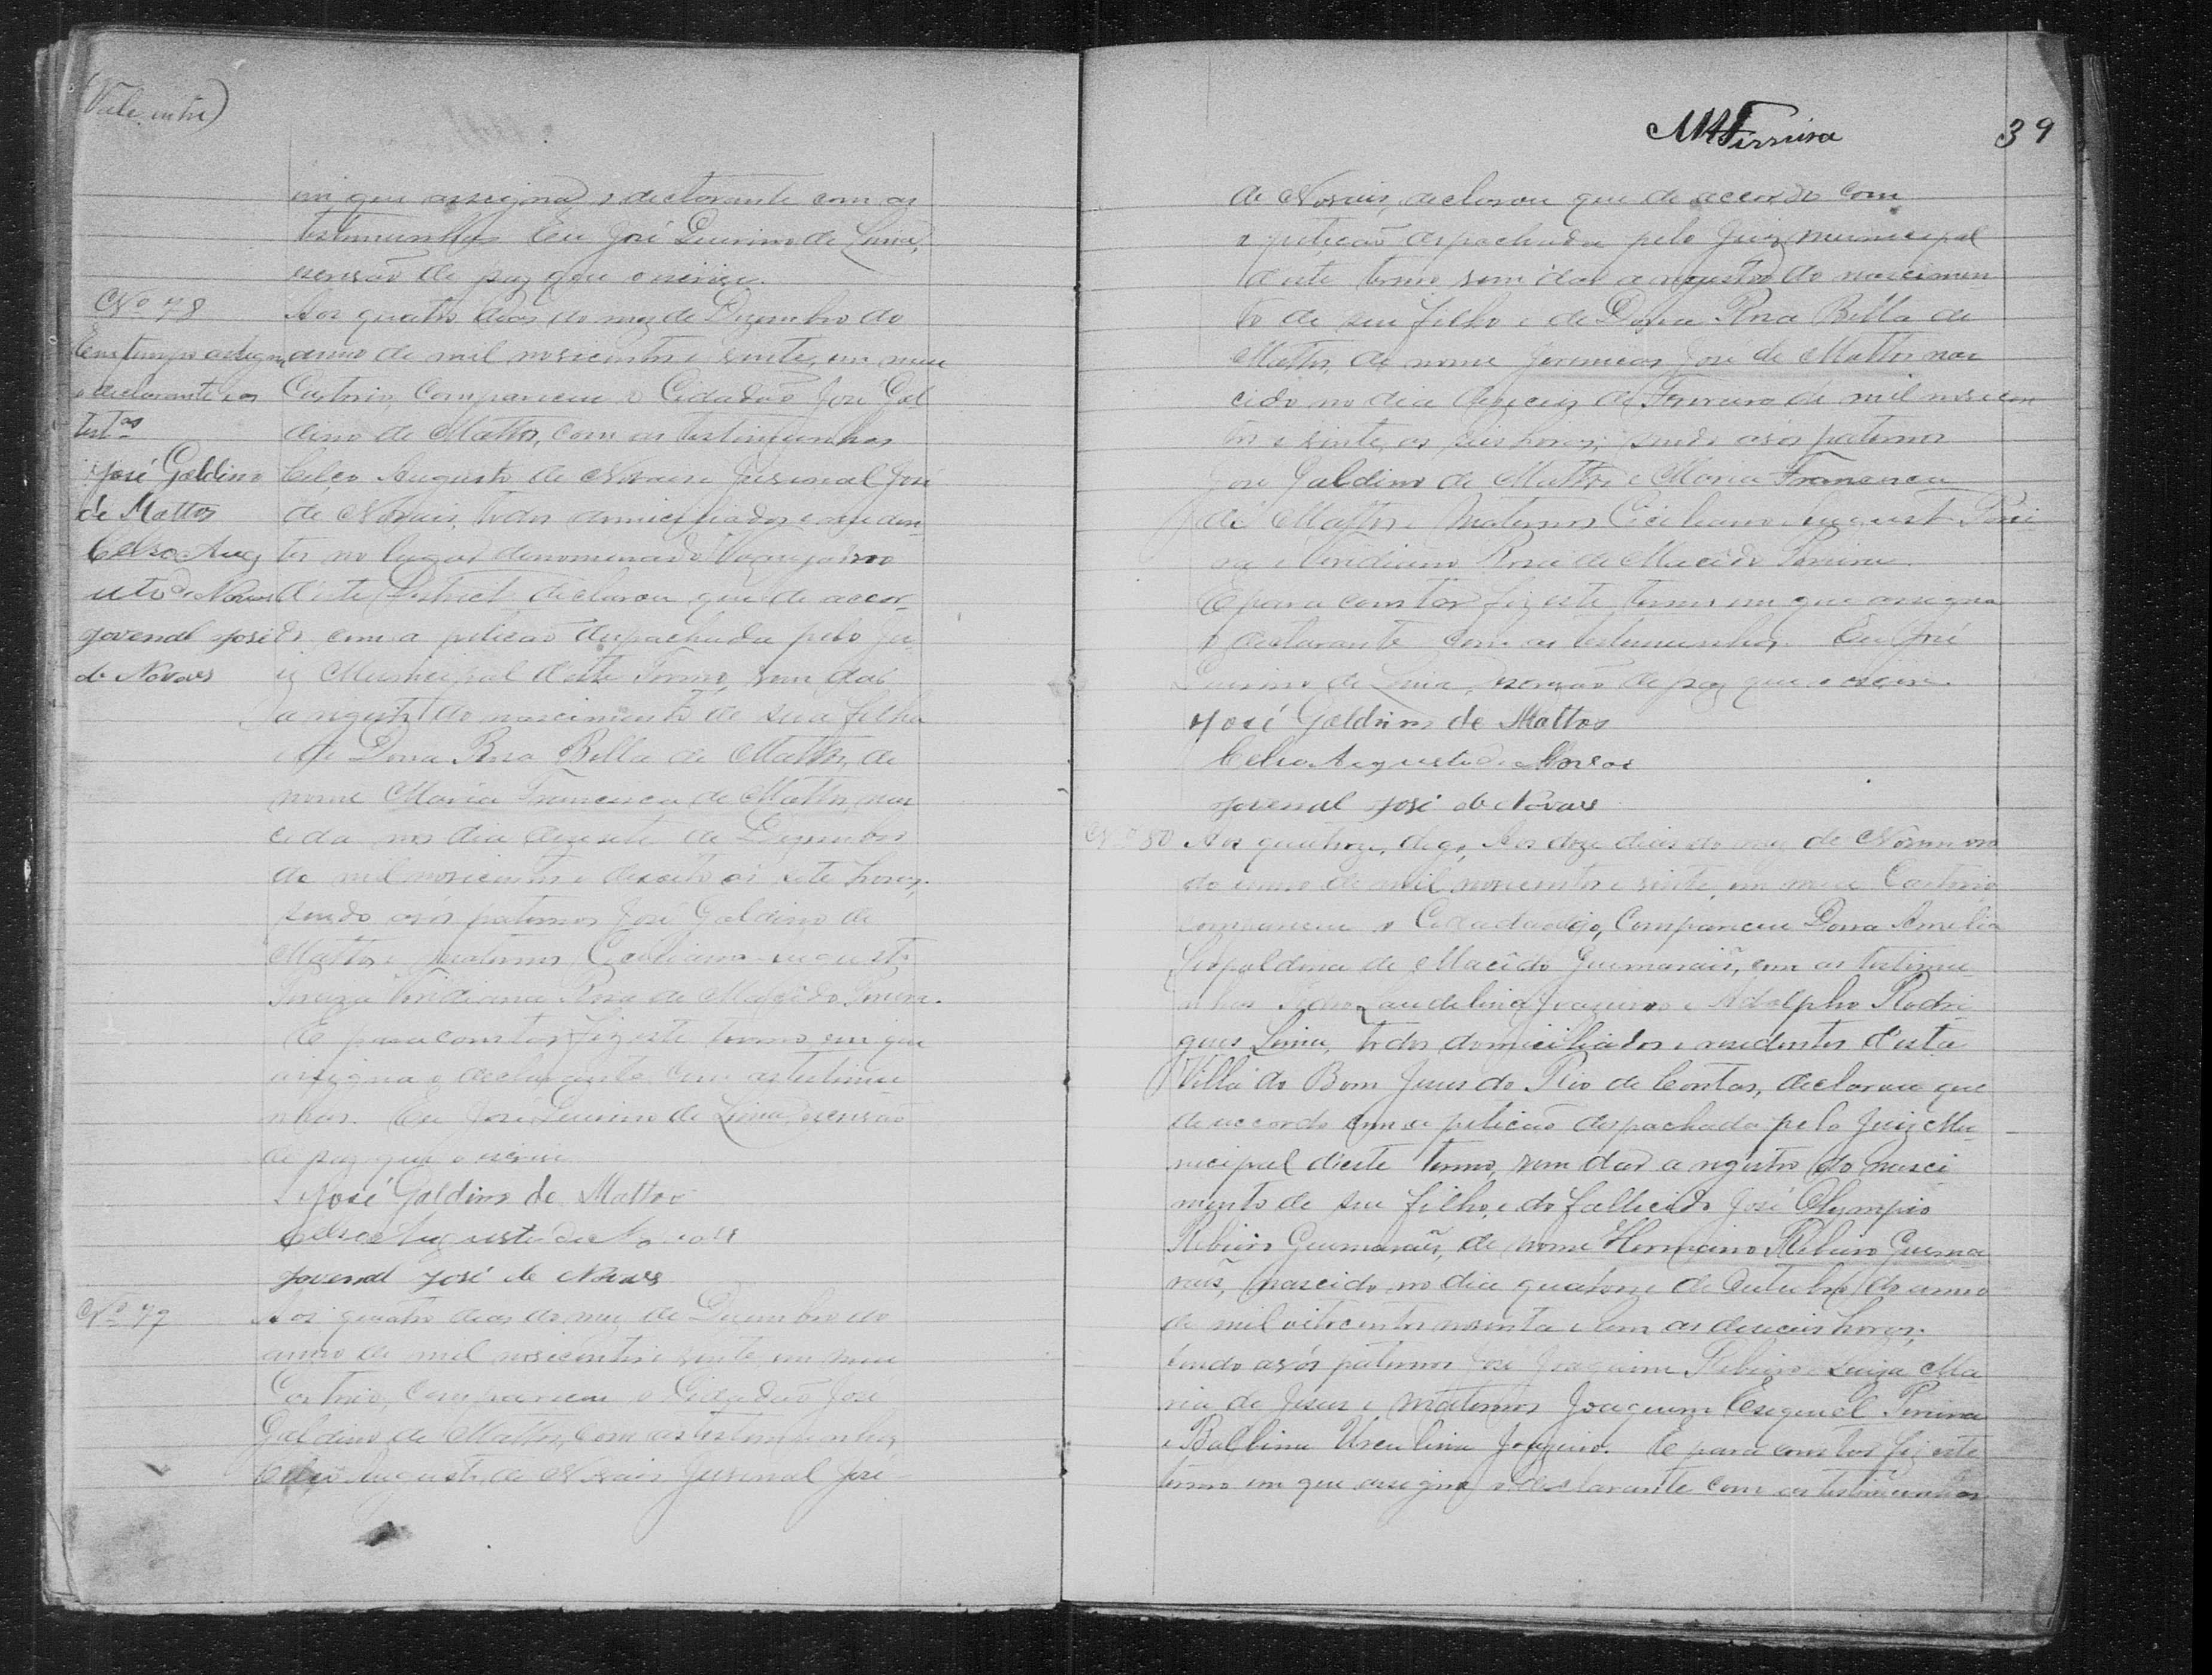 (Vale entre)
em que assigna o declarante com as
testimunhas Eu José Quirino de Lima,
escrivão de paz que o escrivi.
Nº 78
Aos quatro dias do mez de Dezembro do
anno de mil novicentos e vinte, em meu
Cartorio, Compareceu o Cidadão José Gal
dino de Mattos, com as testimunhas
Celço Augusto de Novais e Juvenal José
de Novais, todos domiciliados e residen
tes no lugar denominado
d'este Districto declarou que de accor-
do com a petição despachada pelo Ju
iz Municipal d'este Termo, vem dar
a registro do nascimento de sua filha
e de Dona Rosa Bella de Mattos, de
nome Maria Francisca de Mattos, nas
cida no dia dezesete de Dezembro
de mil novicentos e dezoito as sete horas,
sendo avós paternos José Galdino de
Mattos e maternos Ciciliano Augusto
Viridiana Rosa de Macêdo Pereira.
E para constar fiz este termo em que
assigna o declarante com as testimu
nhas. Eu José Quirino de Lima, escrivão
de paz que o escrivi
José Galdino de Mattos
Celso Augusto de Novais
Jovenal José de Novaes
Em tempo assigna
o declarante e as
testas
José Galdino
de Mattos
Celso Aug
usto de Novais
Jovenal José
de Novaes
Nº 79
Aos quatro dias do mez de Dezembro do
anno de mil novicentos e vinte, em meu
Cartorio, Compareceu o Cidadão José
Galdino de Mattos, com as testimunhas
Celço Augusto de Novais Juvenal José
MAFerreira
39
de Novais, declarou que de accordo com
a petição despachada pelo Juiz Municipal
d'este termo vem dar a registro do nascimen
to de seu filho e de Dona Rosa Bella de
Mattos, de nome Jeremias José de Mattos nas
cido no dia dezeceis de Fevereiro de mil novicen
tos e vinte, as seis horas; sendo avós paternos
José Galdino de Mattos e Maria Francisca
de Mattos e maternos Ciciliano Augusto Perei
ra e Viridiana Rosa de Macêdo Pereira.
E para constar fiz este termo em que assigna
o declarante com as testemunhas. Eu José
Quirino de Lima, escrivão de paz que o escrivi.
José Galdino de Mattos
Celso Augusto de Novais
Jovenal José de Novaes
Nº 80
Aos quatorze, digo, Aos doze dias do mez de Novembro
do anno de mil novicentos e vinte, em meu Cartorio
compareceu o Cidadão digo, Compareceu Dona Amelia
Leopoldina de Macêdo Guimarães, com as testimu
nhas Laudelino Joazeiro e Adolpho Rodri
gues Lima, todos domiciliados e residentes d'esta
Villa do Bom Jesus do Rio de Contas, declarou que
de accordo com a petição despachada pelo Juiz Mu-
nicipal d'este termo, vem dar a registro do nasci
mento de seu filho e do fallecido José Olympio
Ribeiro Guimarães, de nome Hermano Ribeiro Guima
rães, nascido no dia quatorze de Outubro do anno
de mil oitocentos noventa e um as deseceis horas;
sendo avós paternos José Joaquim Ribeiro e Luiza Ma
ria de Jesus e maternos Joaquim Esequiel Pereira
e Balbina Ursulina Joazeiro. E para constar fiz este
termo em que assigna o declarante com as testimunhas